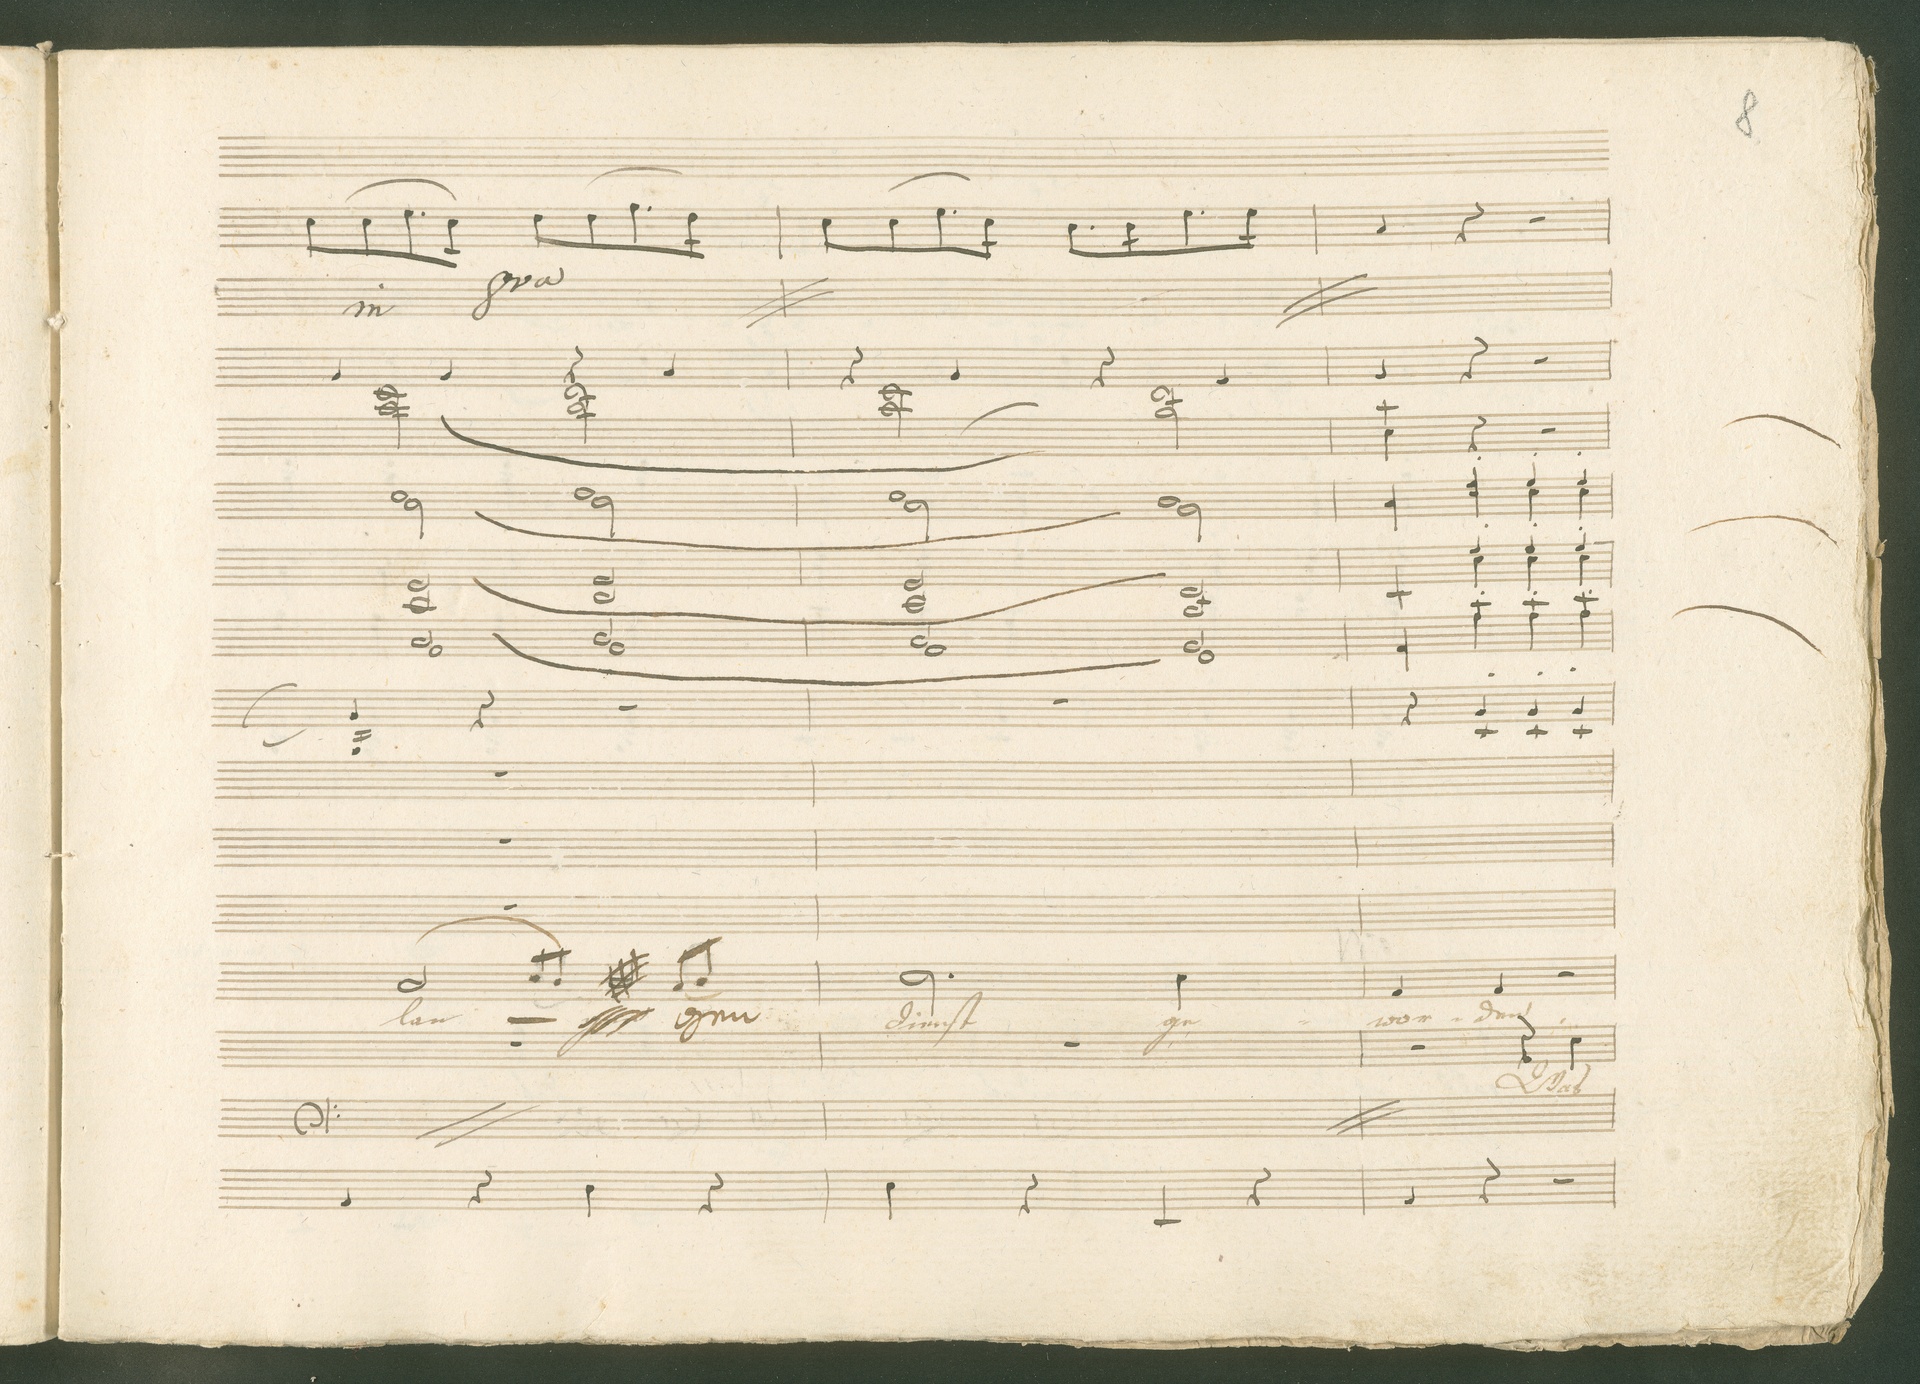 8
in 8va
lan — gen dienst ge - wor - den
Was